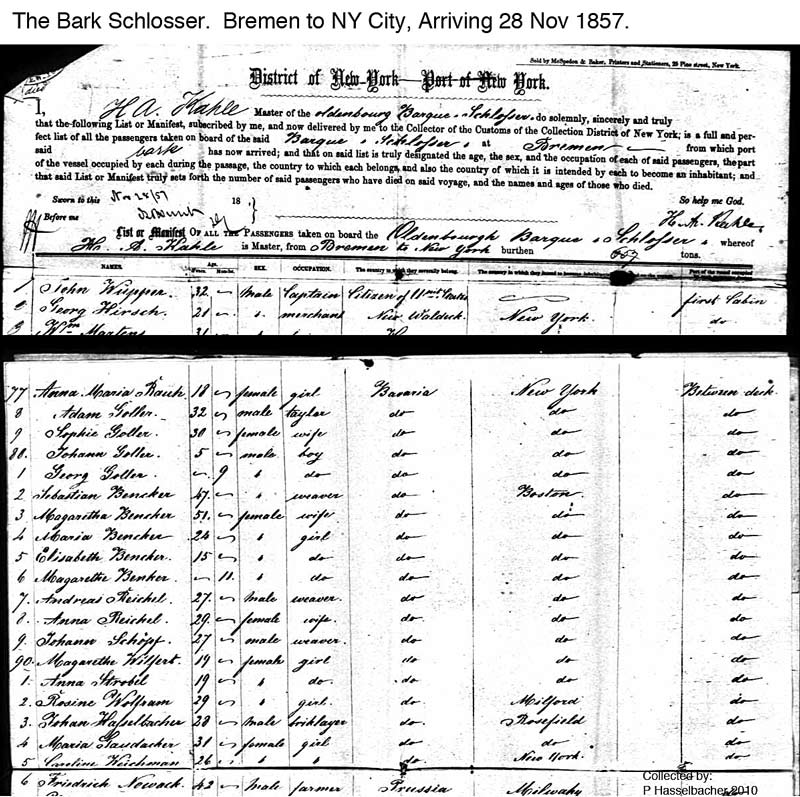 The Bark Schlosser. Bremen to NY City, Arriving 28 Nov 1857.
Sold by McSpedon & Baker, Printers and Stationers, 25 Pine street, New York.
District of New-York—Port of New York.
I, H A. Hahle Master of the oldenbourg Barque Schlosser do solemnly, sincerely and truly
that the following List or Manifest, subscribed by me, and now delivered by me to the Collector of the Customs of the Collection District of New York; is a full and per-
fect list of all the passengers taken on board of the said Barque Schlosser at Bremen from which port
said bark has now arrived; and that on said list is truly designated the age, the sex, and the occupation of each of said passengers, the part
of the vessel occupied by each during the passage, the country to which each belongs, and also the country of which it is intended by each to become an inhabitant; and
that said List or Manifest truly sets forth the number of said passengers who have died on said voyage, and the names and ages of those who died.
Sworn to this Nov 28/57 18 So help me God.
Before me H. A. Hahle
List or Manifest OF ALL THE PASSENGERS taken on board the Oldenbourgh Barque Schlosser whereof
H. A. Hahle is Master, from Bremen to New York burthen 657 tons.
NAMES. Age. Years. Months. SEX. OCCUPATION. The country to which they severally belong.
1 John Wüpper. 32 male Captain Citizen of Unit States first Cabin
2 Georg Hirsch. 21 " merchant New York. do
3 Wm Martens 31
77 Anna Maria Rauh 18 female girl Bavaria New York Between deck.
8 Adam Goller. 32 male taylor do do do
9 Sophie Goller. 30 female wife do do do
80. Johann Goller. 5 male boy do do do
1 Georg Goller 9 " do do do do
2 Sebastian Bencker 47 " weaver do Boston. do
3 Magaretha Bencker 51. female wife do do do
4 Maria Bencker 24 " girl do do do
5 Elisabeth Bencker. 15 " do do do do
6 Magarethe Benker. 11. " do do do do
7. Andreas Reichel. 27. male weaver. do do do
8. Anna Reichel. 29. female wife. do do do
9. Johann Schöpf. 27 male weaver. do do do
90. Magarethe Wilfert. 19 female girl do do do
1. Anna Strobel 19 " do. do. do do
2. Rosine Wolfram 29 " girl. do Milford do
3. Johan Hasselbacher 28 male briklayer do. Rosefield do
4 Maria 31 female girl do do do
5 Caroline 26 " " do New York. do
6 Friedrich Nowack. 42 male farmer Prussia Milwaky
Collected by:
P Hasselbacher 2010